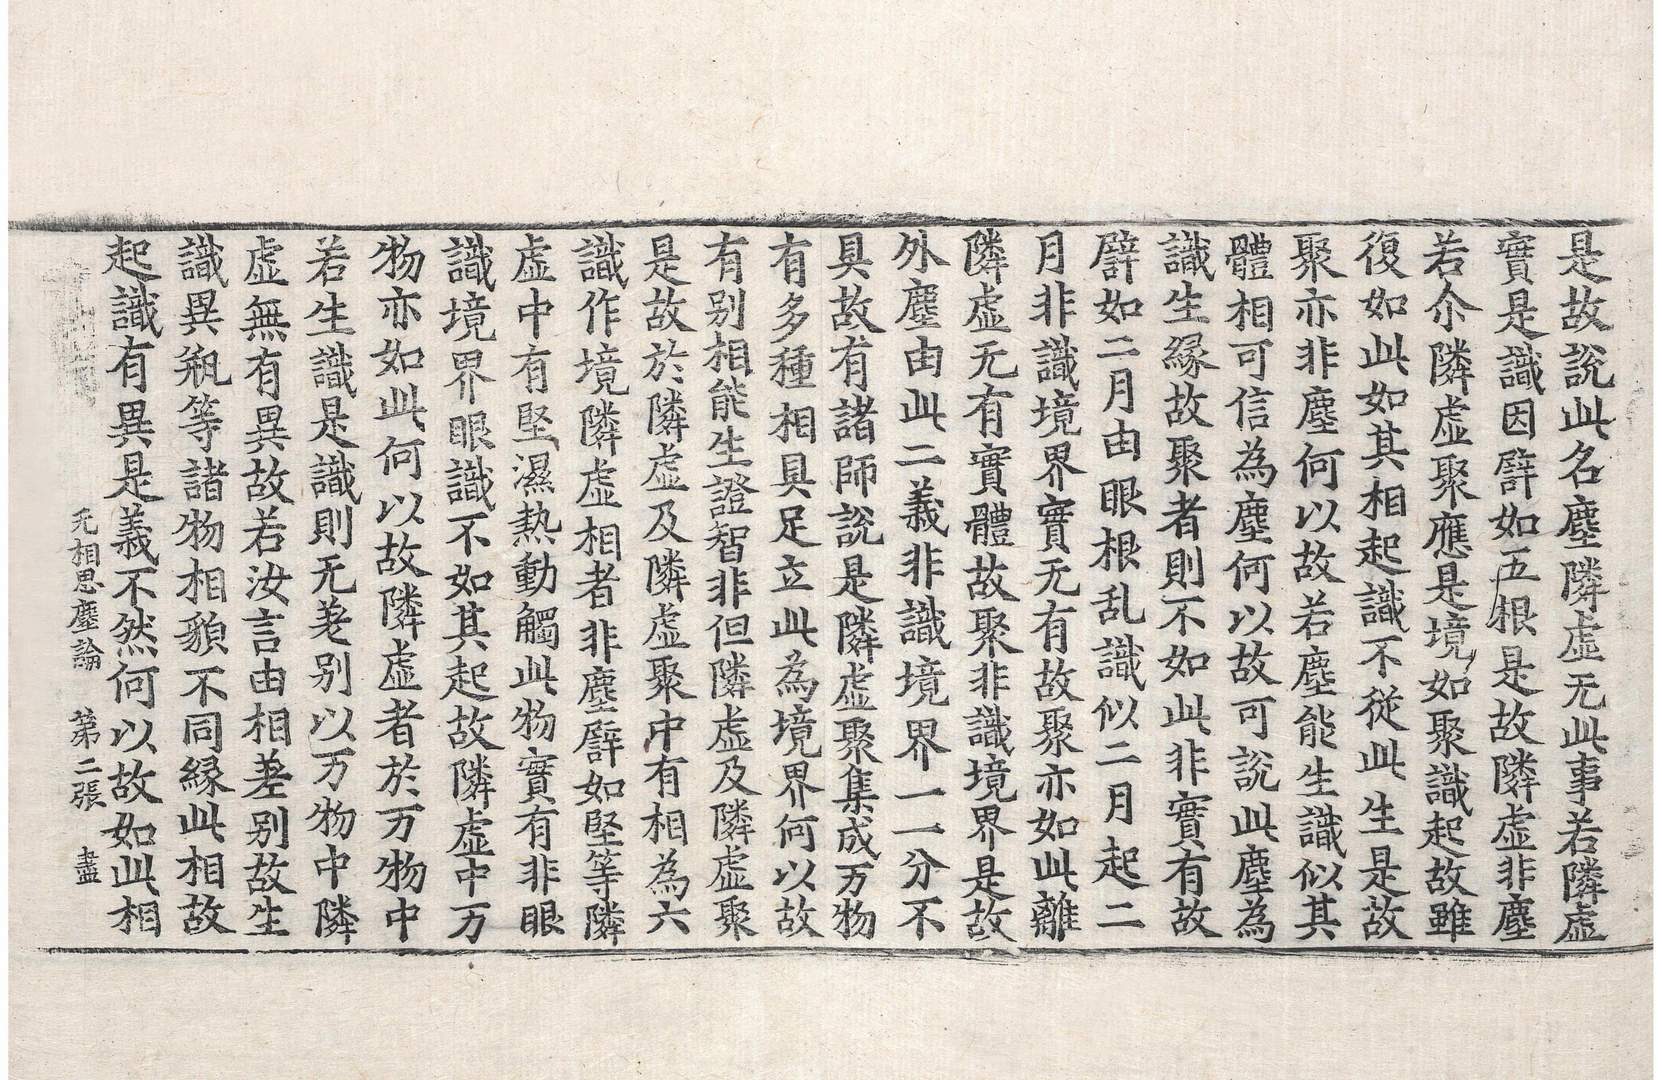 是故說此名塵隣虛无此事若隣虛
實是識因譬如五根是故隣虛非塵
若尒隣虛聚應是境如聚識起故雖
復如此如其相起識不從此生是故
聚亦非塵何以故若塵能生識似其
體相可信為塵何以故可說此塵為
識生緣故聚者則不如此非實有故
譬如二月由眼根乱識似二月起二
月非識境界實无有故聚亦如此離
隣虛无有實體故聚非識境界是故
外塵由此二義非識境界一一分不
具故有諸師說是隣虛聚集成万物
有多種相具足立此為境界何以故
有別相能生證智非但隣虛及隣虛聚
是故於隣虛及隣虛聚中有相為六
識作境隣虛相者非塵譬如堅等隣
虛中有堅濕熱動觸此物實有非眼
識境界眼識不如其起故隣虛中万
物亦如此何以故隣虛者於万物中
若生識是識則无差別以万物中隣
虛無有異故若汝言由相差別故生
識異瓶等諸物相貌不同緣此相故
起識有異是義不然何以故如此相
无相思塵論 第二張 盡